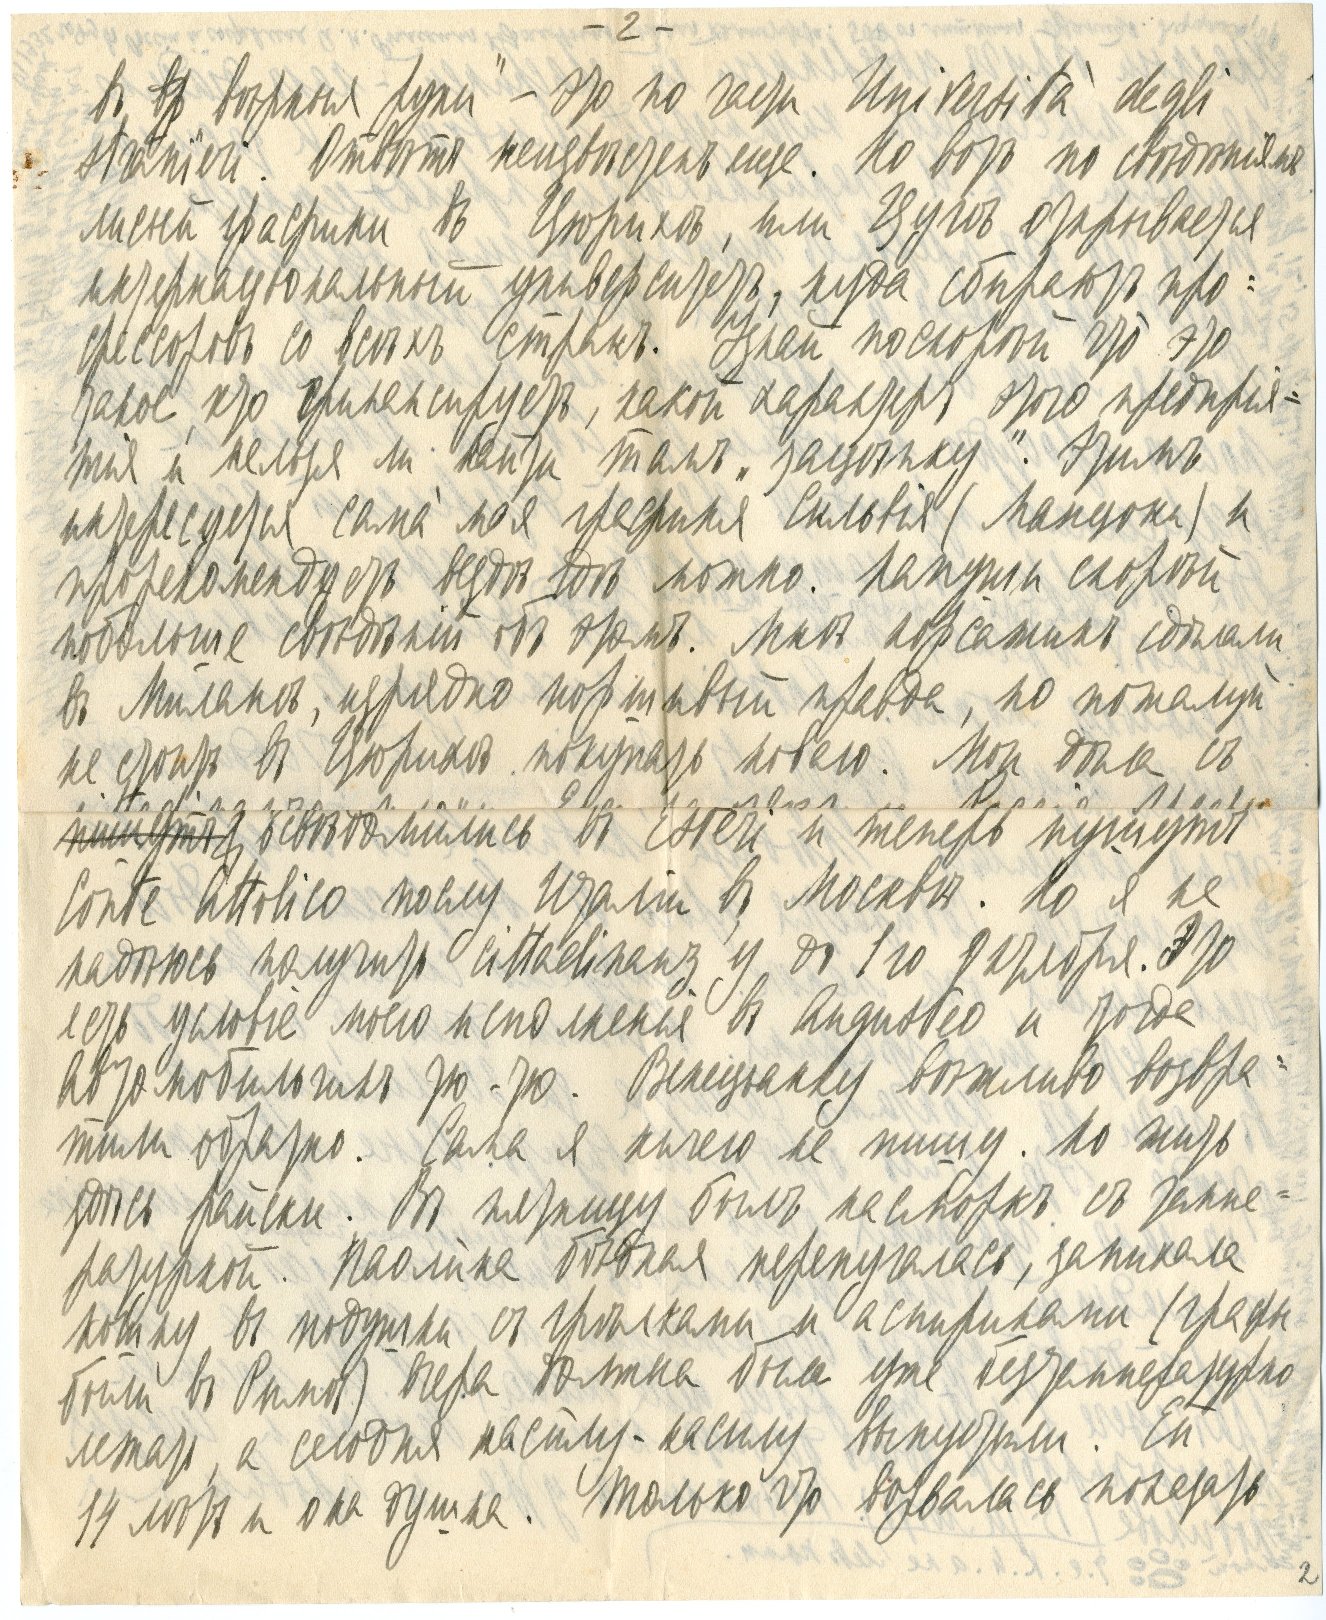 - 2 -
въ вѣрныя руки" — это по части Università degli
stranieri. Отвѣтъ неизвѣстенъ еще. Но вотъ по свѣдѣніямъ
моей графини въ Цюрихѣ, или Цугѣ открывается
интернаціональный университетъ, куда сбираютъ про=
фессоровъ со всѣхъ странъ. Узнай поскорѣй что это
такое, кто финансируетъ, какой характеръ этого предпрія=
тія и нельзя ли найти тамъ „зацѣпку". Этимъ
интересуется сама моя графиня Сильвія (Манцони) и
прорекомендуетъ вездѣ гдѣ можно. Напиши скорѣй
побольше свѣдѣній объ этомъ. Мнѣ корсажикъ сдѣлали
въ Миланѣ, изрядно паршивый правда, но пожалуй
не стоитъ въ Цюрихѣ покупать новаго. Мои дѣла съ
освѣдомились въ Esteri и теперь пишутъ
Conte Attolico послу Италіи въ Москвѣ. Но я не
надѣюсь получить cittadinanz'у до 1го Октября. Это
есть условіе моего исполненія въ Augusteo и тогда
Автомобильчикъ тю-тю. Венеціанку вѣжливо возвра=
тили обратно. Сама я ничего не пишу. Но жить
здѣсь райски. Въ пятницу былъ насморкъ съ темпе=
ратуркой. Паолина бѣдная перепугалась, запихала
кошку въ подушки съ грѣлками и аспиринами (графы
были въ Римѣ) вчера должна была уже безтемпературно
лежать, а сегодня насилу-насилу выпустили. Ей
14 лѣтъ и она душка. Только что ворвалась показать
2